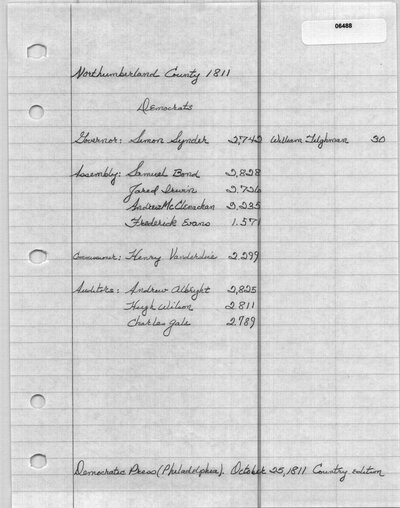 06488
Northumberland County 1811
Democrats
Governor: Simon Synder 2,742 William Tilghman 30
Assembly: Samuel Bond 2,828
Jared Irwin 2,726
Andrew McClenachan 2,225
Frederick Evans 1,571
Commissioner: Henry Vanderslice 2,299
Auditors: Andrew Albright 2,825
Hugh Wilson 2,811
Charles Gale 2,789
Democratic Press (Philadelphia). October 25, 1811 Country edition